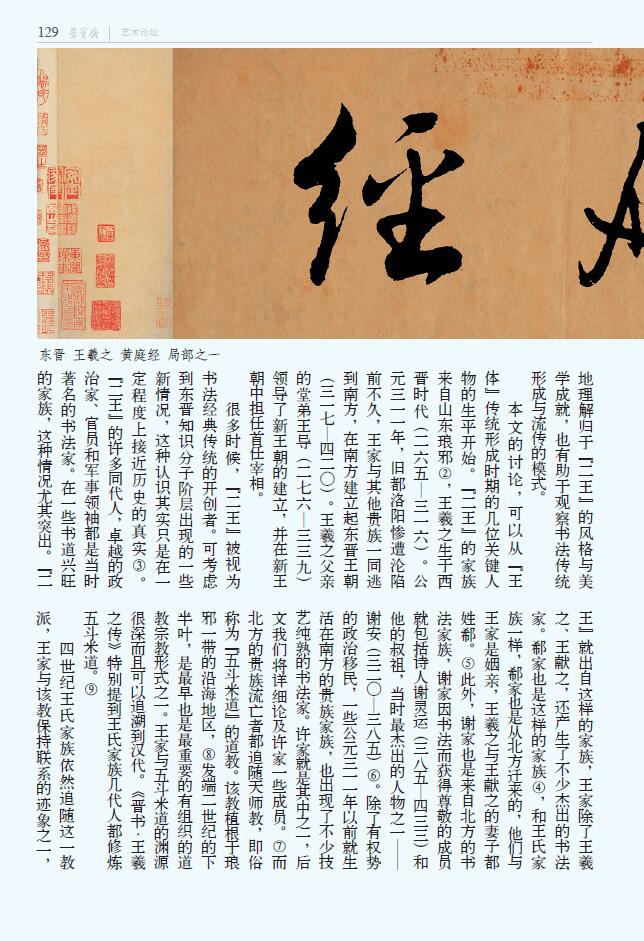 129
荣宝斋
艺术论坛
经
东晋 王羲之 黄庭经 局部之一
地理解归于『二王』的风格与美
学成就，也有助于观察书法传统
形成与流传的模式。
本文的讨论，可以从『王
体』传统形成时期的几位关键人
物的生平开始。『二王』的家族
来自山东琅邪②，王羲之生于西
晋时代（二六五—三一六）。公
元三一一年，旧都洛阳惨遭沦陷
前不久，王家与其他贵族一同逃
到南方，在南方建立起东晋王朝
（三一七—四二〇）。王羲之父亲
的堂弟王导（二七六—三三九）
领导了新王朝的建立，并在新王
朝中担任首任宰相。
很多时候，『二王』被视为
书法经典传统的开创者。可考虑
到东晋知识分子阶层出现的一些
新情况，这种认识其实只是在一
定程度上接近历史的真实③。
『二王』的许多同代人，卓越的政
治家、官员和军事领袖都是当时
著名的书法家。在一些书道兴旺
的家族，这种情况尤其突出。『二
王』就出自这样的家族，王家除了王羲
之、王献之，还产生了不少杰出的书法
家。郗家也是这样的家族④，和王氏家
族一样，郗家也是从北方迁来的，他们与
王家是姻亲，王羲之与王献之的妻子都
姓郗。⑤此外，谢家也是来自北方的书
法家族，谢家因书法而获得尊敬的成员
就包括诗人谢灵运（三八五—四三三）和
他的叔祖，当时最杰出的人物之一——
谢安（三二〇—三八五）⑥。除了有权势
的政治移民，一些公元三一一年以前就生
活在南方的贵族家族，也出现了不少技
艺纯熟的书法家。许家就是其中之一，后
文我们将详细论及许家一些成员。⑦而
北方的贵族流亡者都追随天师教，即俗
称为『五斗米道』的道教。该教植根于琅
邪一带的沿海地区，⑧发端二世纪的下
半叶，是最早也是最重要的有组织的道
教宗教形式之一。王家与五斗米道的渊源
很深而且可以追溯到汉代。《晋书·王羲
之传》特别提到王氏家族几代人都修炼
五斗米道。⑨
四世纪王氏家族依然追随这一教
派，王家与该教保持联系的迹象之一，